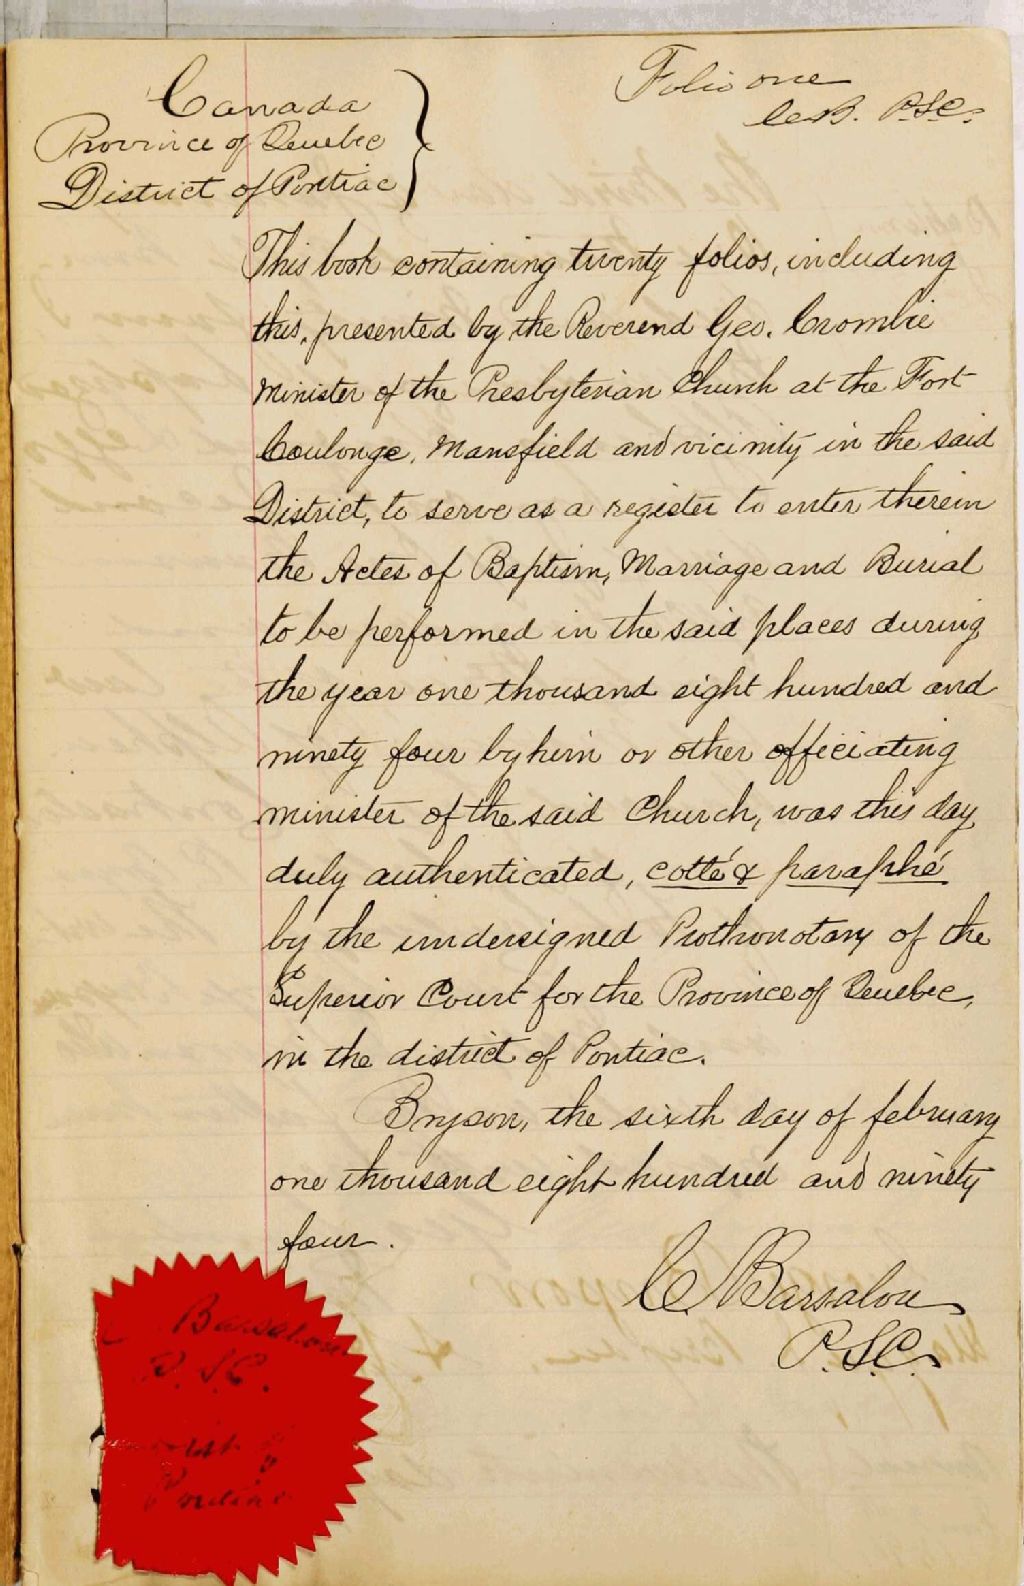 Canada
Province of Quebec
District of Pontiac
Folio one
C.B. P.S.C.
This book containing twenty folios, including
this, presented by the Reverend Geo. Crombie
Minister of the Presbyterian Church at the Fort
Coulonge, Mansfield and vicinity in the said
District, to serve as a register to enter therein
the Actes of Baptism, Marriage and Burial
to be performed in the said places during
the year one thousand eight hundred and
ninety four by him or other officiating
minister of the said Church, was this day
duly authenticated, cotté & paraphé
by the undersigned Prothonotary of the
Superior Court for the Province of Quebec,
in the district of Pontiac.
Bryson, the sixth day of february
one thousand eight hundred and ninety
four.
C Barsalou
P.S.C.
Barsalou
P.S.C.
Pontiac